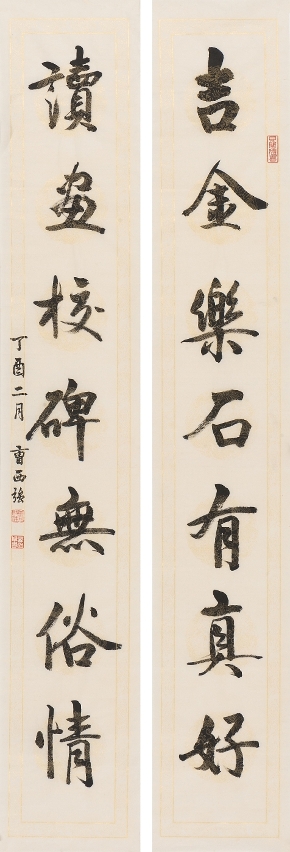 吉金樂石有真好
讀畫校碑無俗情
丁酉二月
曹西強